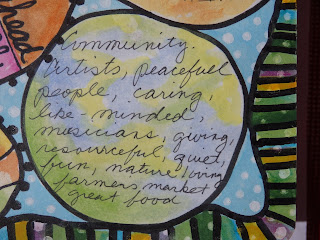 head
Community:
artists, peacefull
people, caring,
like-minded,
musicians, giving,
resourceful, quiet,
fun, nature loving
farmers market
great food